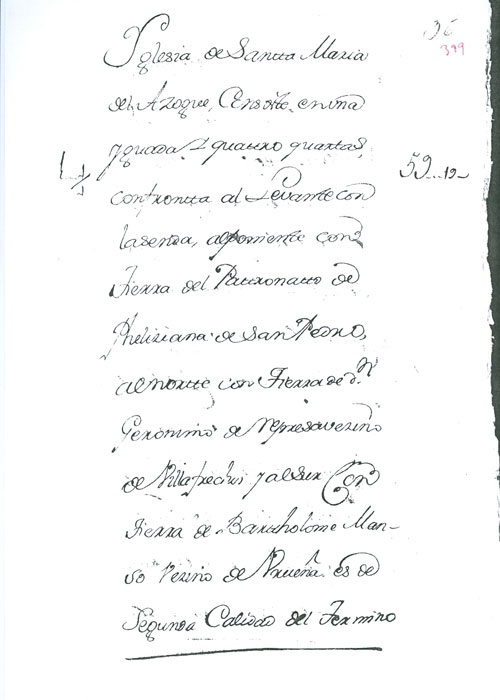 36
399
Yglesia de Santta Maria
del Azogue, Consiste en una
yguada i quattro quarttas,
1 1/2
59..12
confronta al Levante con
la senda, al poniente con
tierra del Pattronatto de
Pheliziana de San Pedro,
al nortte con tierra de d.n
Geronimo de vezino
de Villafrechos y al sur con
tierra de Bartholome Man-
so vezino de Urueña es de
Segunda Calidad del Termino